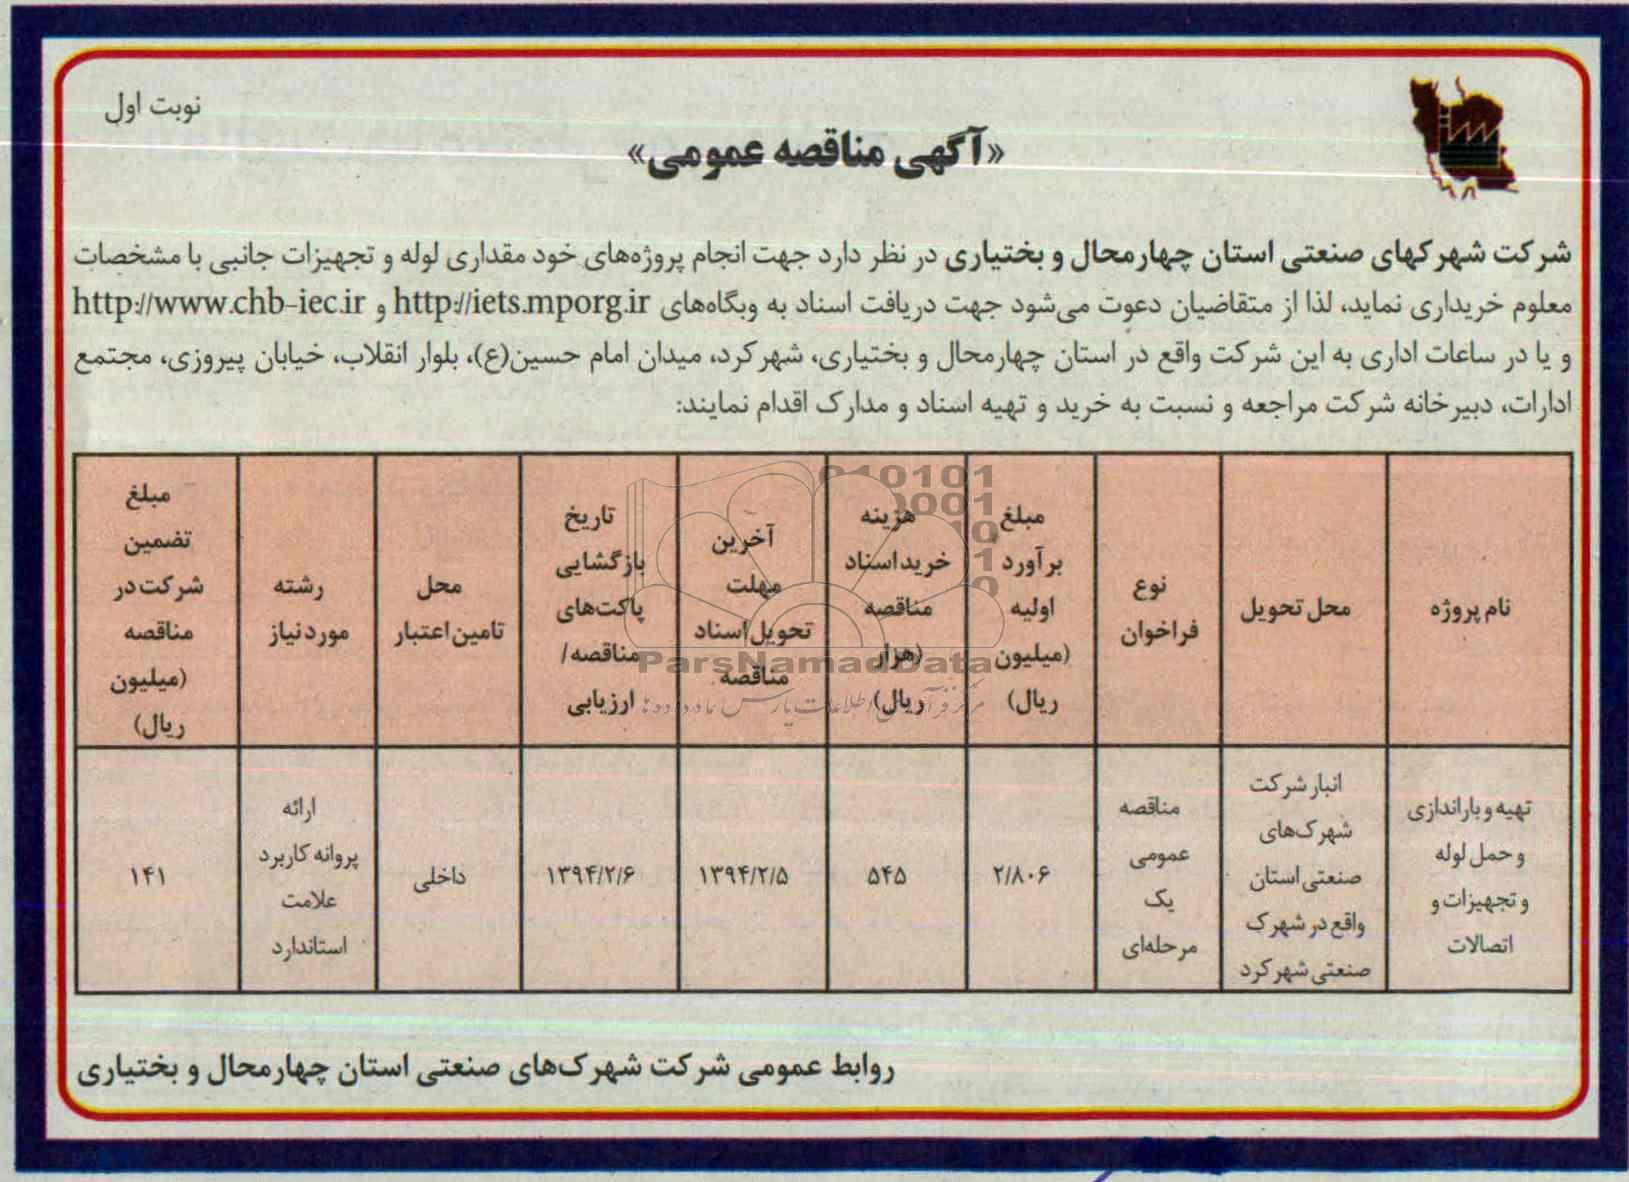 نوبت اول
«آگهی مناقصه عمومی»
شرکت شهرکهای صنعتی استان چهارمحال و بختیاری در نظر دارد جهت انجام پروژه‌های خود مقداری لوله و تجهیزات جانبی با مشخصات
معلوم خریداری نماید، لذا از متقاضیان دعوت می‌شود جهت دریافت اسناد به وبگاه‌های http://iets.mporg.ir و http://www.chb-iec.ir
و یا در ساعات اداری به این شرکت واقع در استان چهارمحال و بختیاری، شهرکرد، میدان امام حسین(ع)، بلوار انقلاب، خیابان پیروزی، مجتمع
ادارات، دبیرخانه شرکت مراجعه و نسبت به خرید و تهیه اسناد و مدارک اقدام نمایند:
نام پروژه
محل تحویل
نوع
فراخوان
مبلغ
برآورد
اولیه
(میلیون
ریال)
هزینه
خرید اسناد
مناقصه
(هزار
ریال)
آخرین
مهلت
تحویل اسناد
مناقصه
تاریخ
بازگشایی
پاکت‌های
مناقصه/
ارزیابی
محل
تامین اعتبار
رشته
مورد نیاز
مبلغ
تضمین
شرکت در
مناقصه
(میلیون
ریال)
تهیه و باراندازی
و حمل لوله
و تجهیزات و
اتصالات
انبار شرکت
شهرک‌های
صنعتی استان
واقع در شهرک
صنعتی شهرکرد
مناقصه
عمومی
یک
مرحله‌ای
۲/۸۰۶
۵۴۵
۱۳۹۴/۲/۵
۱۳۹۴/۲/۶
داخلی
ارائه
پروانه کاربرد
علامت
استاندارد
۱۴۱
010101
0001
10
10
ParsNamadData
مرکز فرآوری اطلاعات پارس نماد داده ها
روابط عمومی شرکت شهرک‌های صنعتی استان چهارمحال و بختیاری